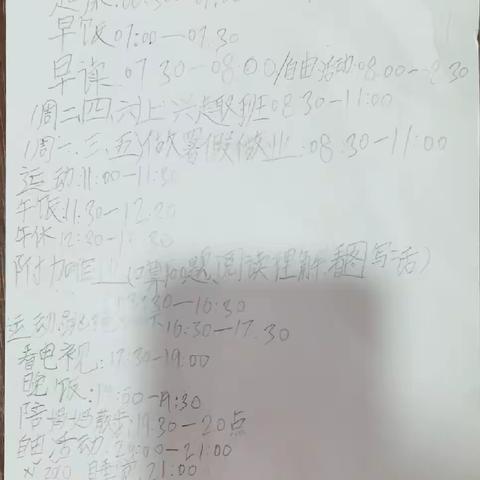 起床:06:30—07:00
早饭07:00—07.30
早课.07 30—08:00/自由活动:08.00—8.30
(周二、四、六)上兴趣班08 30—11:00
(周一、三、五)做署假做业:08.30—11:00
运动:11:00—11:30
午饭:11.30—12.20
午休
附加(口算100题、阅读理解、看图写话)
—16:30
运动 16:30—17.30
看电视:17:30—19:00
晚饭:19:00—19:30
陪 散步:19.30—20点
自由活动:20:00—21:00
21:00